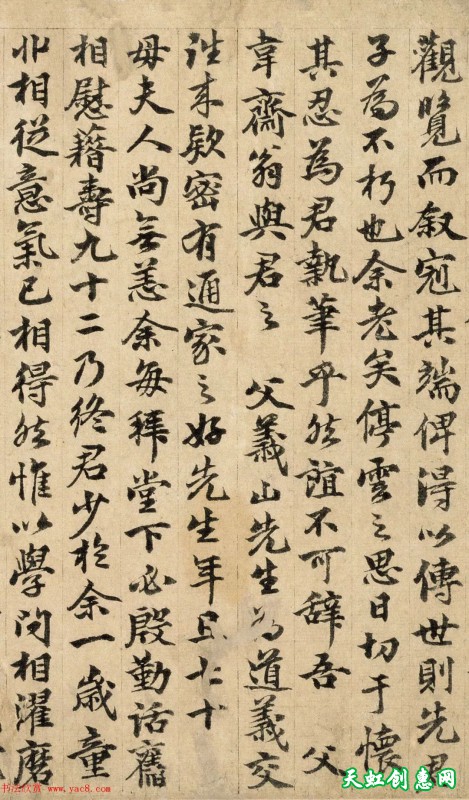 觀覽而叙冠其端俾得以傳世則先君
子為不朽也余老矣停雲之思日切于懷
其忍為君執筆乎然誼不可辭吾 父
韋齋翁與君之 父義山先生為道義交
往来欵密有通家之好先生年且七十
母夫人尚無恙余每拜堂下必殷勤話舊
相慰藉壽九十二乃終君少於余一歲童
丱相從意氣已相得然惟以學问相濯磨
书法欣赏 www.yac8.com
天虹创惠网